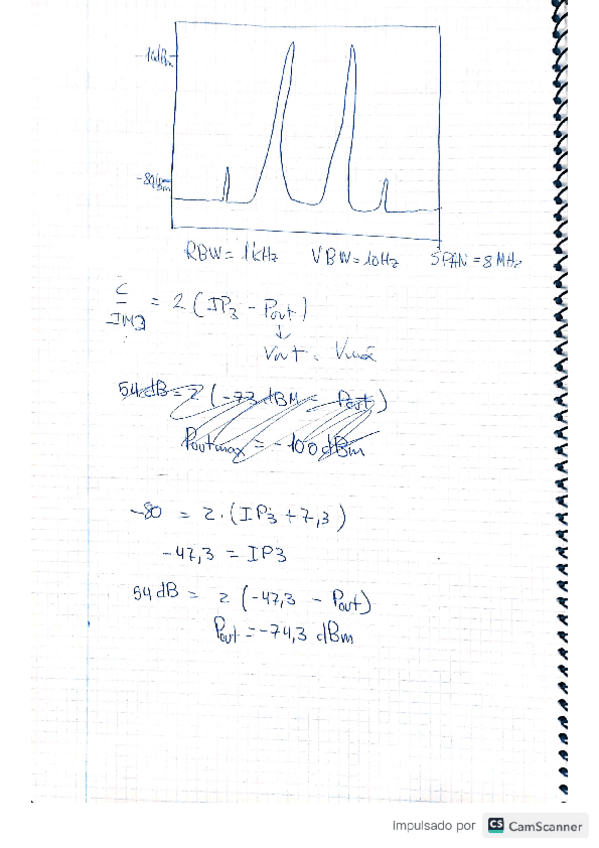 -10dBm
-80dBm
RBW = 1kHz VBW = 10Hz SPAN = 8 MHz
C/IM3 = 2 (IP3 - Pout)
↓
54dB = 2 (-73 dBM - Pout)
Poutmax = -100 dBm
-80 = 2·(IP3 + 7,3)
-47,3 = IP3
54 dB = 2 (-47,3 - Pout)
Pout = -74,3 dBm
Impulsado por CS CamScanner